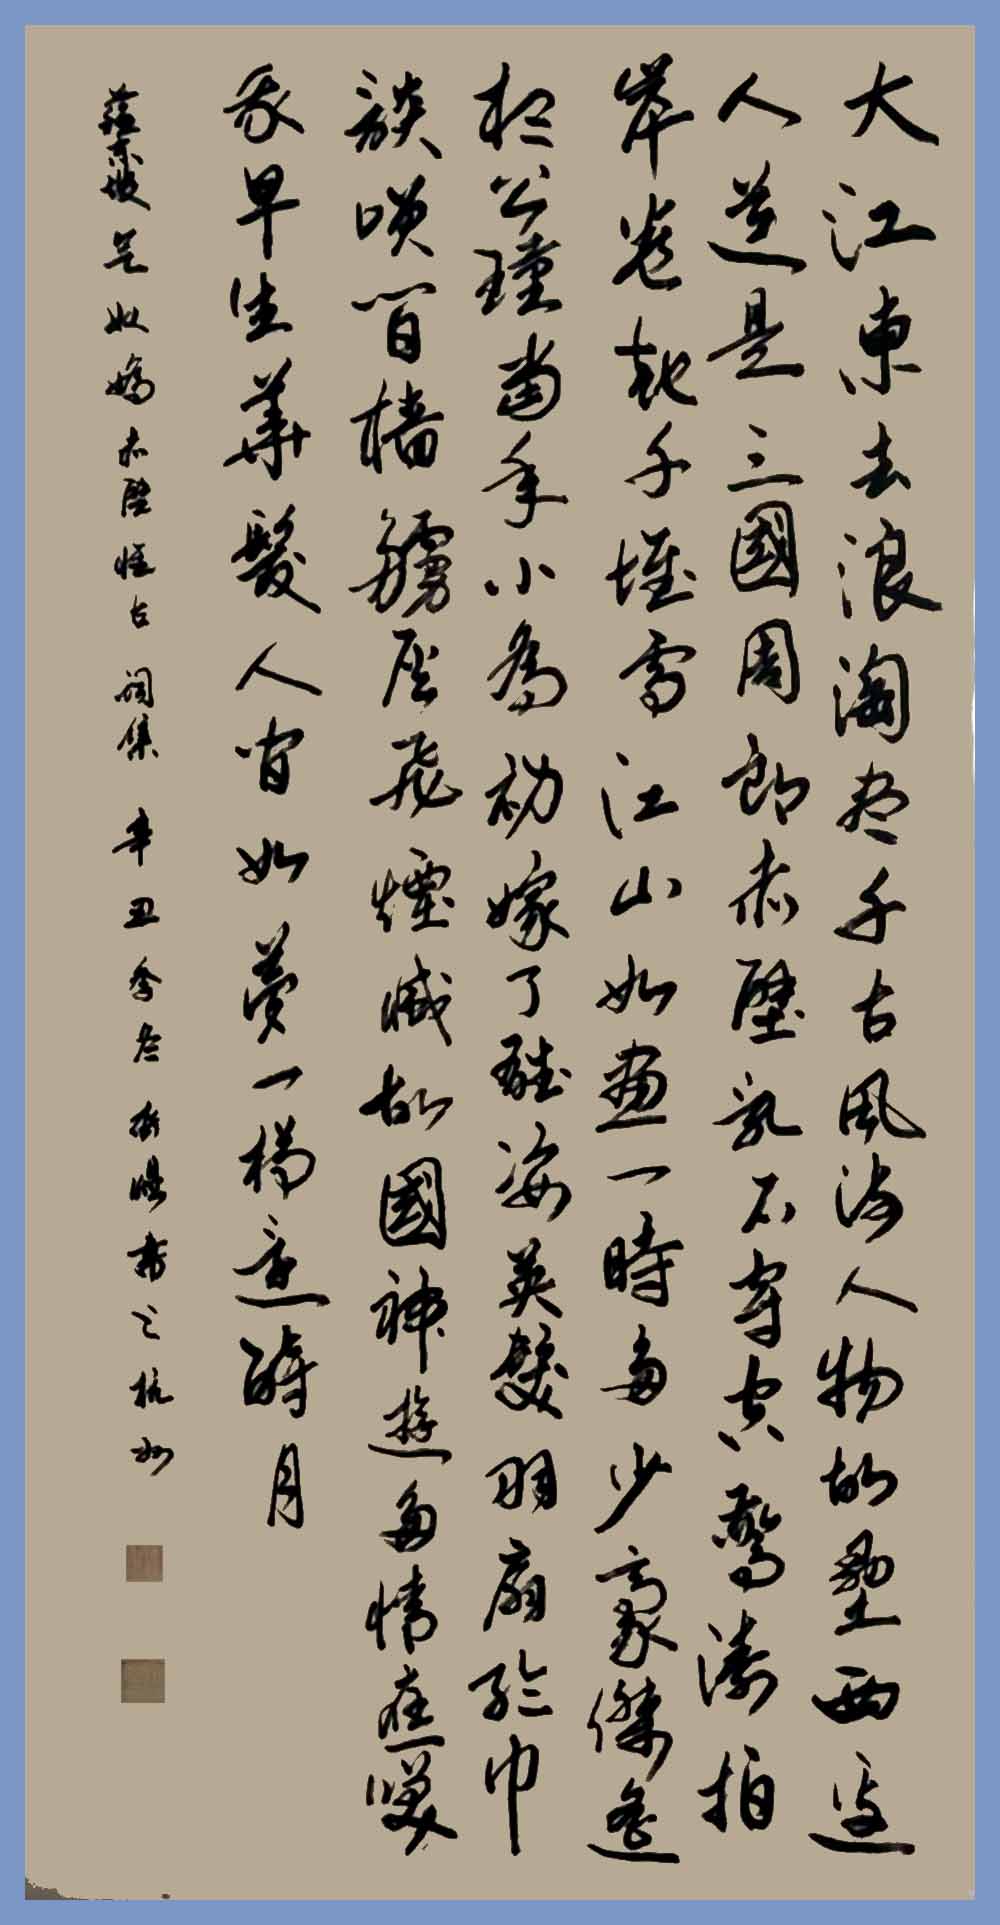 大江東去浪淘盡千古風流人物故壘西邊
人道是三國周郎赤壁亂石穿空驚濤拍
岸卷起千堆雪江山如畫一時多少豪傑遙
想公瑾當年小喬初嫁了雄姿英發羽扇綸巾
談笑間檣艣灰飛煙滅故國神遊多情應笑
我早生華髮人間如夢一樽還酹月
蘇東坡念奴嬌赤壁懷古詞集辛丑季冬書之杭州